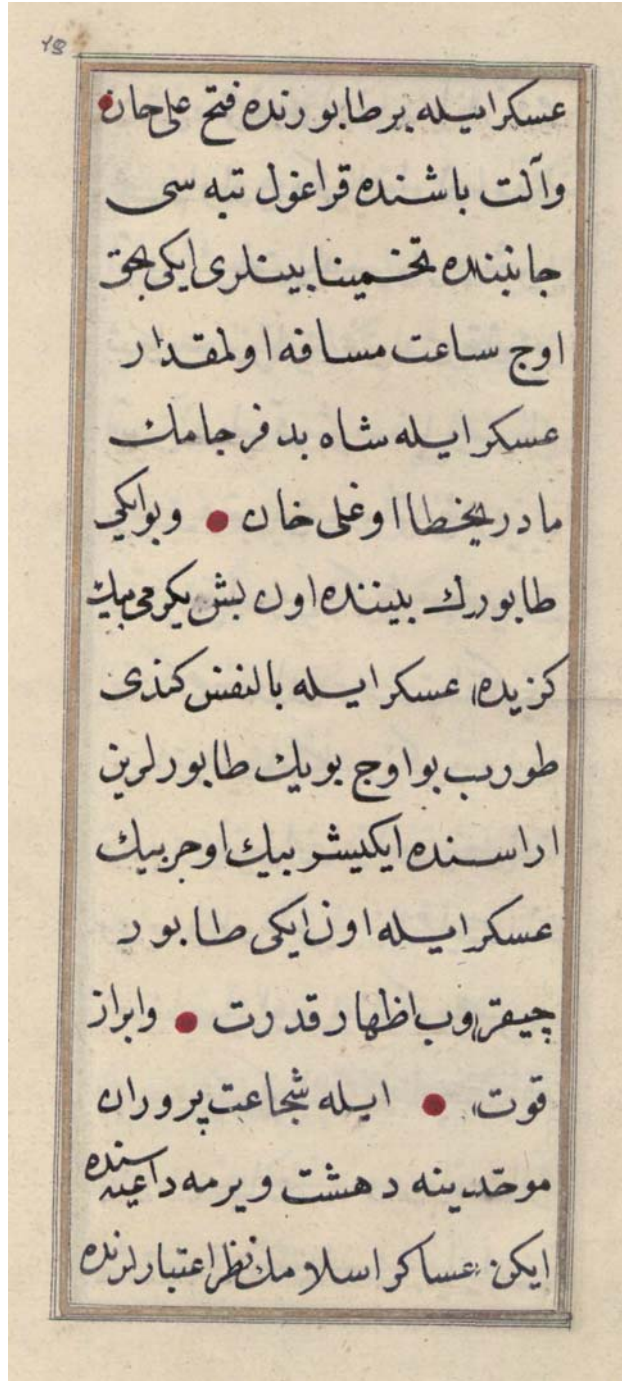 ٢٥
عسكر ايله بر طابورنده فتح على خان
و آلت باشنده قراغول تپه سى
جانبنده تخمينا بينلرى ايكى بچق
اوچ ساعت مسافه اولمقدار
عسكر ايله شاه بد فرجامك
مادر بخطا اوغلى خان و بو ايكى
طابورك بيننده اون بش يكرمى بيك
كزيده عسكر ايله بالنفس كندى
طورب بو اوچ بويك طابورلرين
اراسنده ايكيشر بيك اوچر بيك
عسكر ايله اون ايكى طابور
چيقروب اظهار قدرت و ابراز
قوت ايله شجاعت پروران
موحدينه دهشت ويرمه داعيه سنده
ايكن عساكر اسلامك نظر اعتبارلرنده